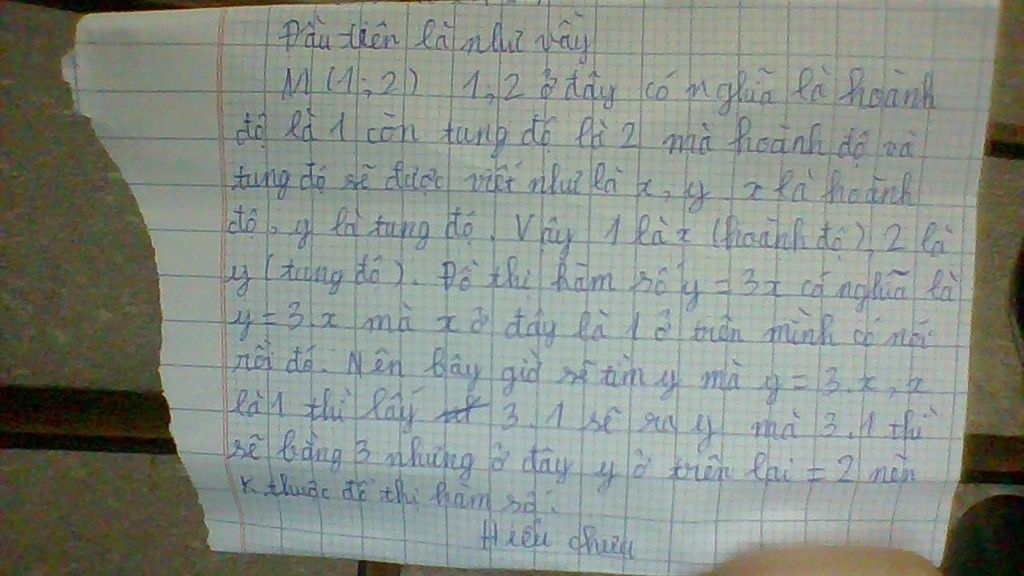 Đầu tiên là như vầy
M (1; 2) 1, 2 ở đây có nghĩa là hoành
độ là 1 còn tung độ là 2 mà hoành độ và
tung độ sẽ được viết như là x, y x là hoành
độ, y là tung độ. Vậy 1 là x (hoành độ), 2 là
y (tung độ). Đồ thị hàm số y = 3x có nghĩa là
y = 3.x mà x ở đây là 1 ở trên mình có nói
rồi đó. Nên bây giờ sẽ tìm y mà y = 3.x, x
là 1 thì lấy 3.1 sẽ ra y mà 3.1 thì
sẽ bằng 3 nhưng ở đây y ở trên lại = 2 nên
k thuộc đồ thị hàm số.
Hiểu chưa